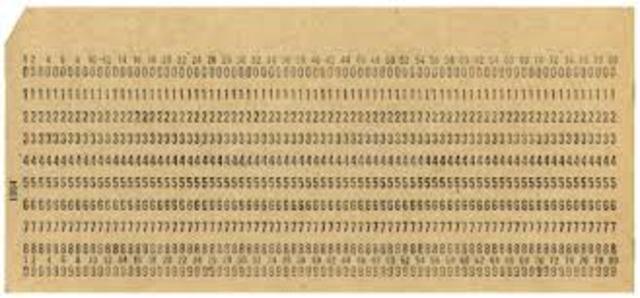 2 4 6 8 10 12 14 16 18 20 22 24 26 28 30 32 34 36 38 40 42 44 46 48 50 52 54 56 58 60 62 64 66 68 70 72 74 76 78 80
00000000000000000000000000000000000000000000000000000000000000000000000000000000
11111111111111111111111111111111111111111111111111111111111111111111111111111111
22222222222222222222222222222222222222222222222222222222222222222222222222222222
33333333333333333333333333333333333333333333333333333333333333333333333333333333
44444444444444444444444444444444444444444444444444444444444444444444444444444444
55555555555555555555555555555555555555555555555555555555555555555555555555555555
66666666666666666666666666666666666666666666666666666666666666666666666666666666
77777777777777777777777777777777777777777777777777777777777777777777777777777777
88888888888888888888888888888888888888888888888888888888888888888888888888888888
1 2 4 6 8 10 12 14 16 18 20 22 24 26 28 30 32 34 36 38 40 42 44 46 48 50 52 54 56 58 60 62 64 66 68 70 72 74 76 78 80
99999999999999999999999999999999999999999999999999999999999999999999999999999999